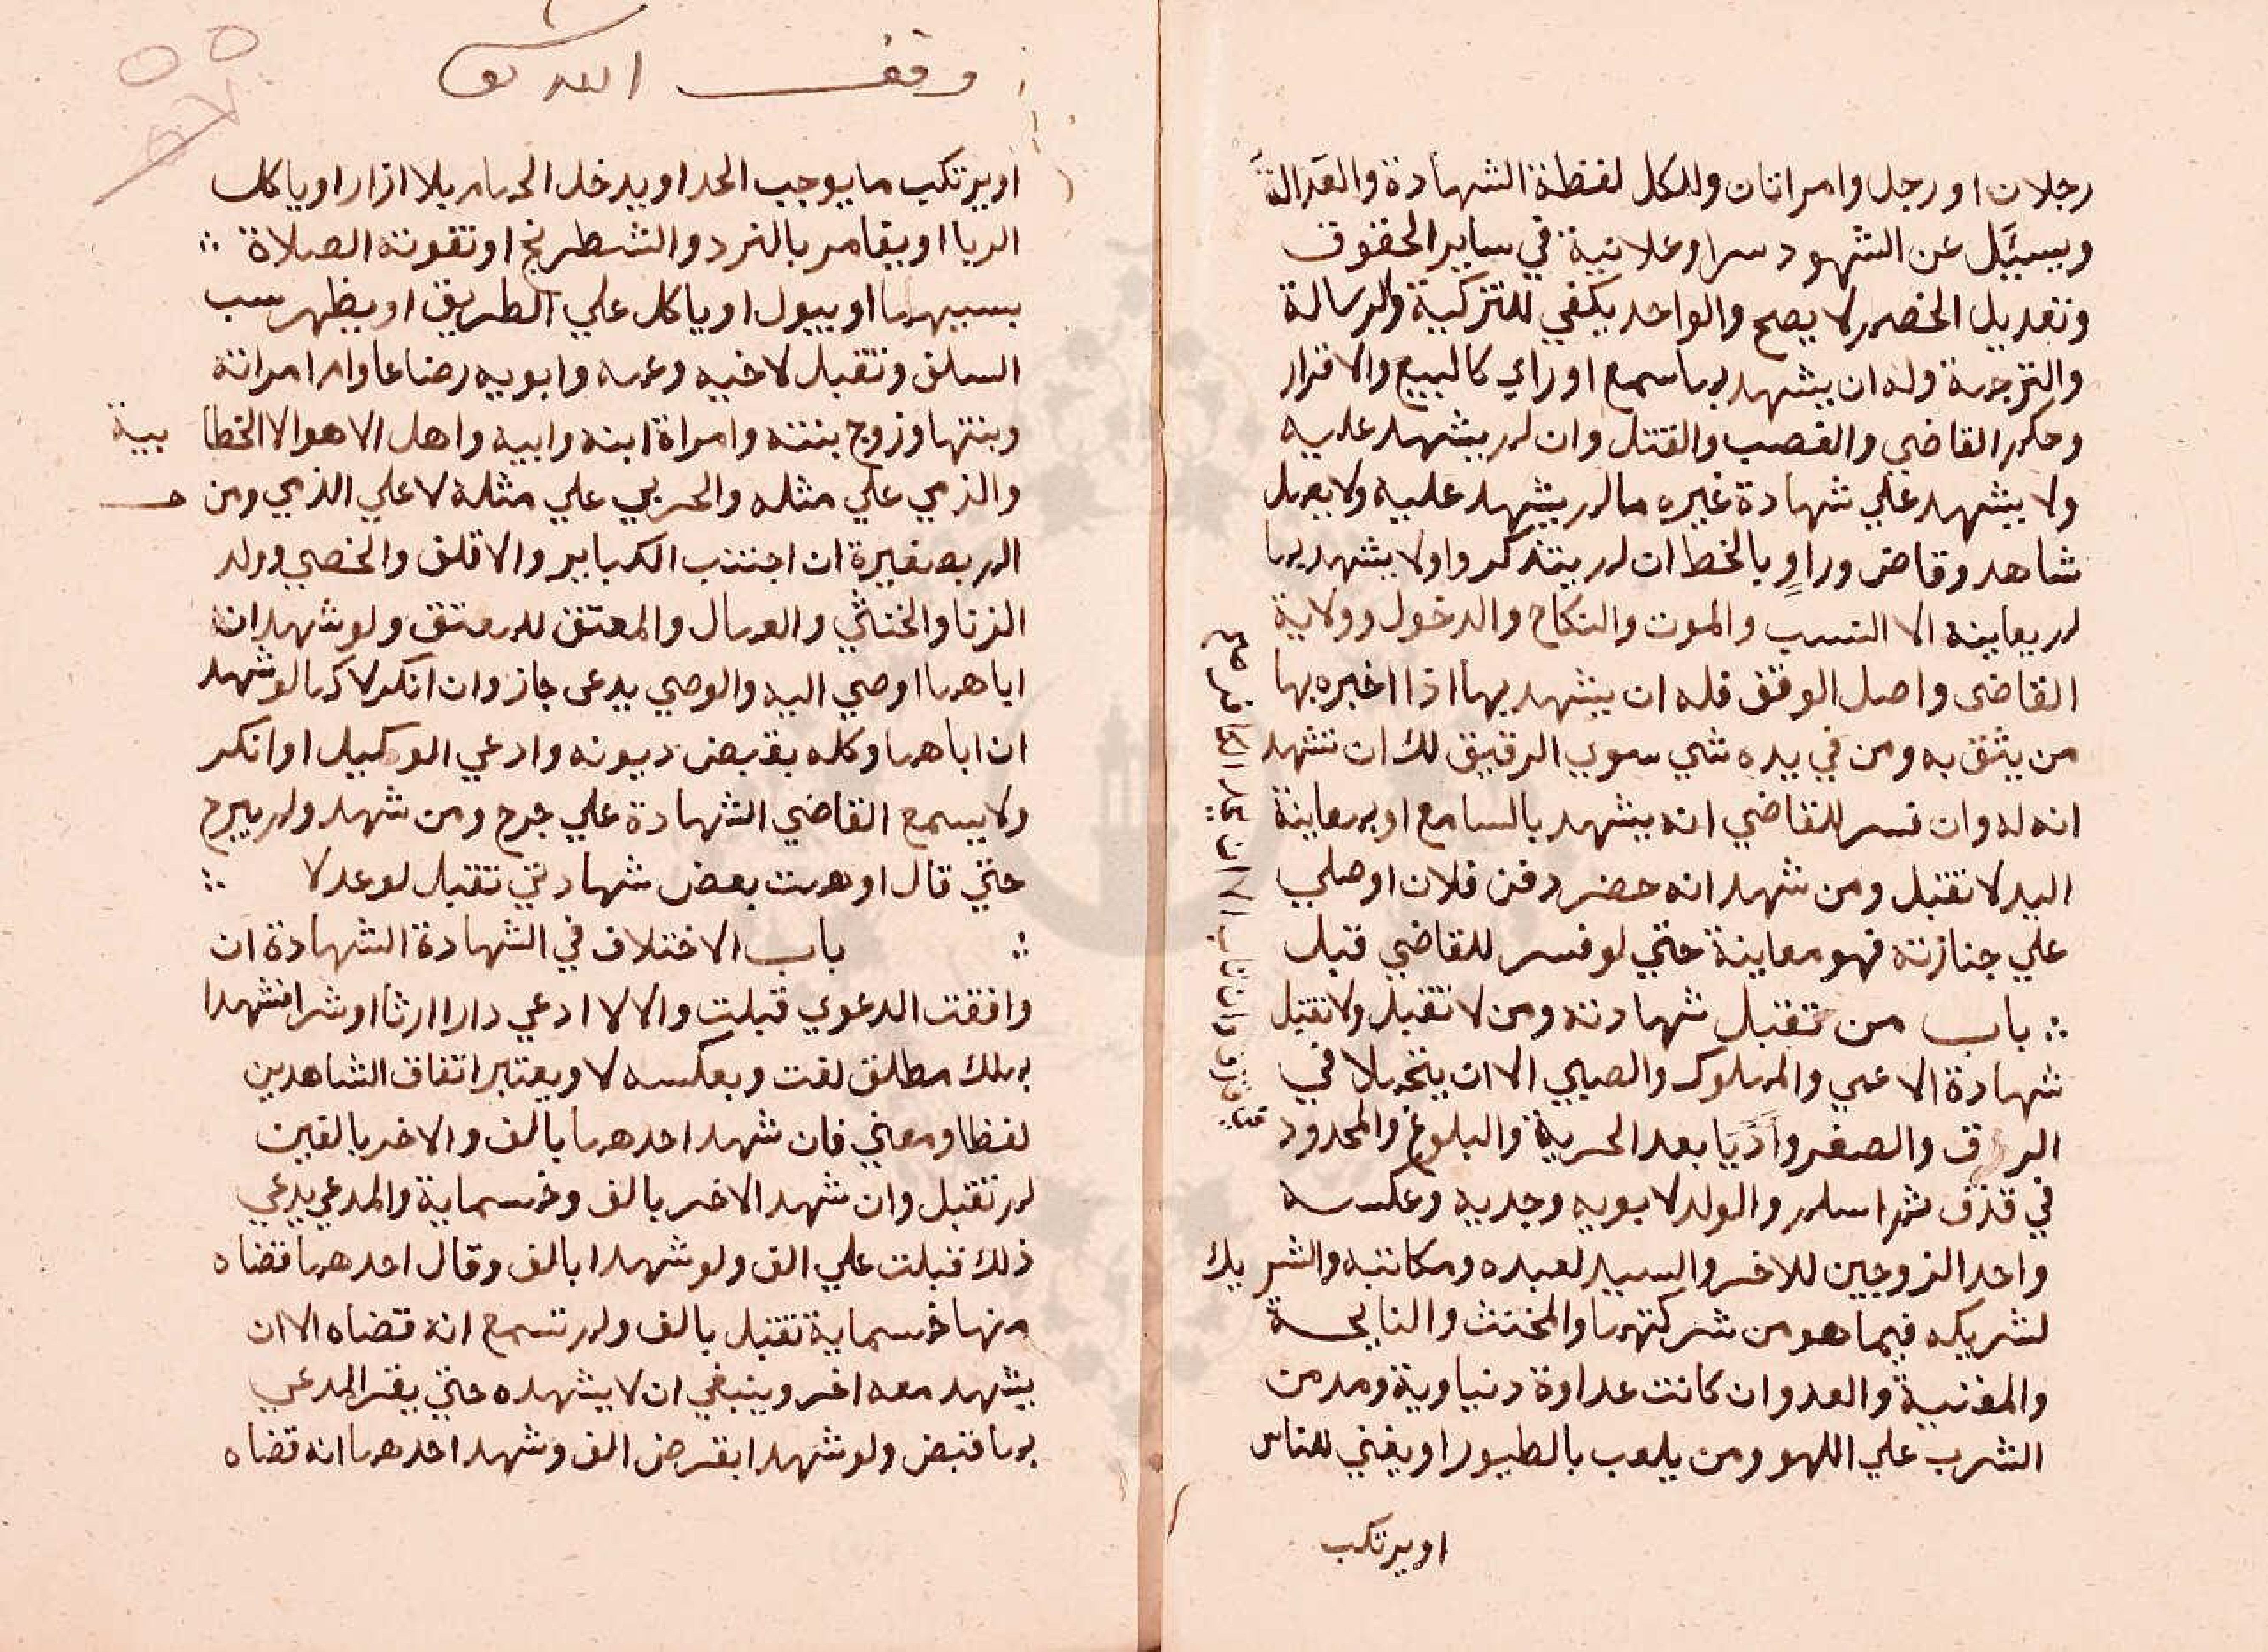 رجلان او رجل وامراتان وللكل لفظة الشهادة والعدالة
ويسئل عن الشهود سرا وعلانية في ساير الحقوق
وتعديل الخصم لا يصح والواحد يكفي للتزكية والرسالة
والترجمة وله ان يشهد بما سمع او راي كالبيع والاقرار
وحكم القاضي والغصب والقتل وان لم يشهد عليه
ولا يشهد علي شهادة غيره ما لم يشهد عليه ولا يعمل
شاهد وقاض وراو بالخط ان لم يتذكروا ولا يشهد بما
لم يعاينه الا النسب والموت والنكاح والدخول وولاية
القاضي واصل الوقف فله ان يشهد بها اذا اخبره بها
من يثق به ومن في يده شي سوي الرقيق لك ان تشهد
انه له وان فسر للقاضي انه يشهد بالسامع او بمعاينة
اليد لا تقبل ومن شهد انه حضر دفن فلان او صلي
علي جنازته فهو معاينة حتي لو فسر للقاضي قبل
باب من تقبل شهادته ومن لا تقبل ولا تقبل
شهادة الاعمي والمملوك والصبي الا ان يتحملا في
الرق والصغر واديا بعد الحرية والبلوغ والمحدود
في قذف ثم اسلم والولد لابويه وجديه وعكسه
واحد الزوجين للاخر والسيد لعبده ومكاتبه والشريك
لشريكه فيما هو من شركتهما والمخنث والنايحة
والمغنية والعدو ان كانت عداوة دنياوية ومدمن
الشرب علي اللهو ومن يلعب بالطيور او يغني للناس
او يرتكب
في قذف وان تاب الا ان يحد الكافر صح
وقف الله تعا
او يرتكب ما يوجب الحد او يدخل الحمام بلا ازار او ياكل
الربا او يقامر بالنرد والشطرنج او تفوته الصلاة
بسببهما او يبول او ياكل علي الطريق او يظهر سب
السلف وتقبل لاخيه وعمه وابويه رضاعا وام امراته
وبنتها وزوج بنته وامراة ابنه وابيه واهل الاهوا الا الخطابية
والذمي علي مثله والحربي علي مثله لا علي الذمي ومن
الم بصغيرة ان اجتنب الكباير والاقلف والخصي وولد
الزنا والخنثي والعمال والمعتق للمعتق ولو شهد ان
اباهما اوصي اليه والوصي يدعي جاز وان انكر لا كما لو شهد
ان اباهما وكله بقبض ديونه وادعي الوكيل او انكر
ولا يسمع القاضي الشهادة علي جرح ومن شهد ولم يبرح
حتي قال اوهمت بعض شهادتي تقبل لو عدلا
باب الاختلاف في الشهادة الشهادة ان
وافقت الدعوي قبلت والا لا ادعي دارا ارثا او شرا فشهدا
بملك مطلق لغت وبعكسه لا ويعتبر اتفاق الشاهدين
لفظا ومعني فان شهد احدهما بالف والاخر بالفين
لم تقبل وان شهد الاخر بالف وخمسماية والمدعي يدعي
ذلك قبلت علي الف ولو شهدا بالف وقال احدهما قضاه
منها خمسماية تقبل بالف ولم تسمع انه قضاه الا ان
يشهد معه اخر وينبغي ان لا يشهده حتي يقر المدعي
بما قبض ولو شهدا بقرض الف وشهد احدهما انه قضاه